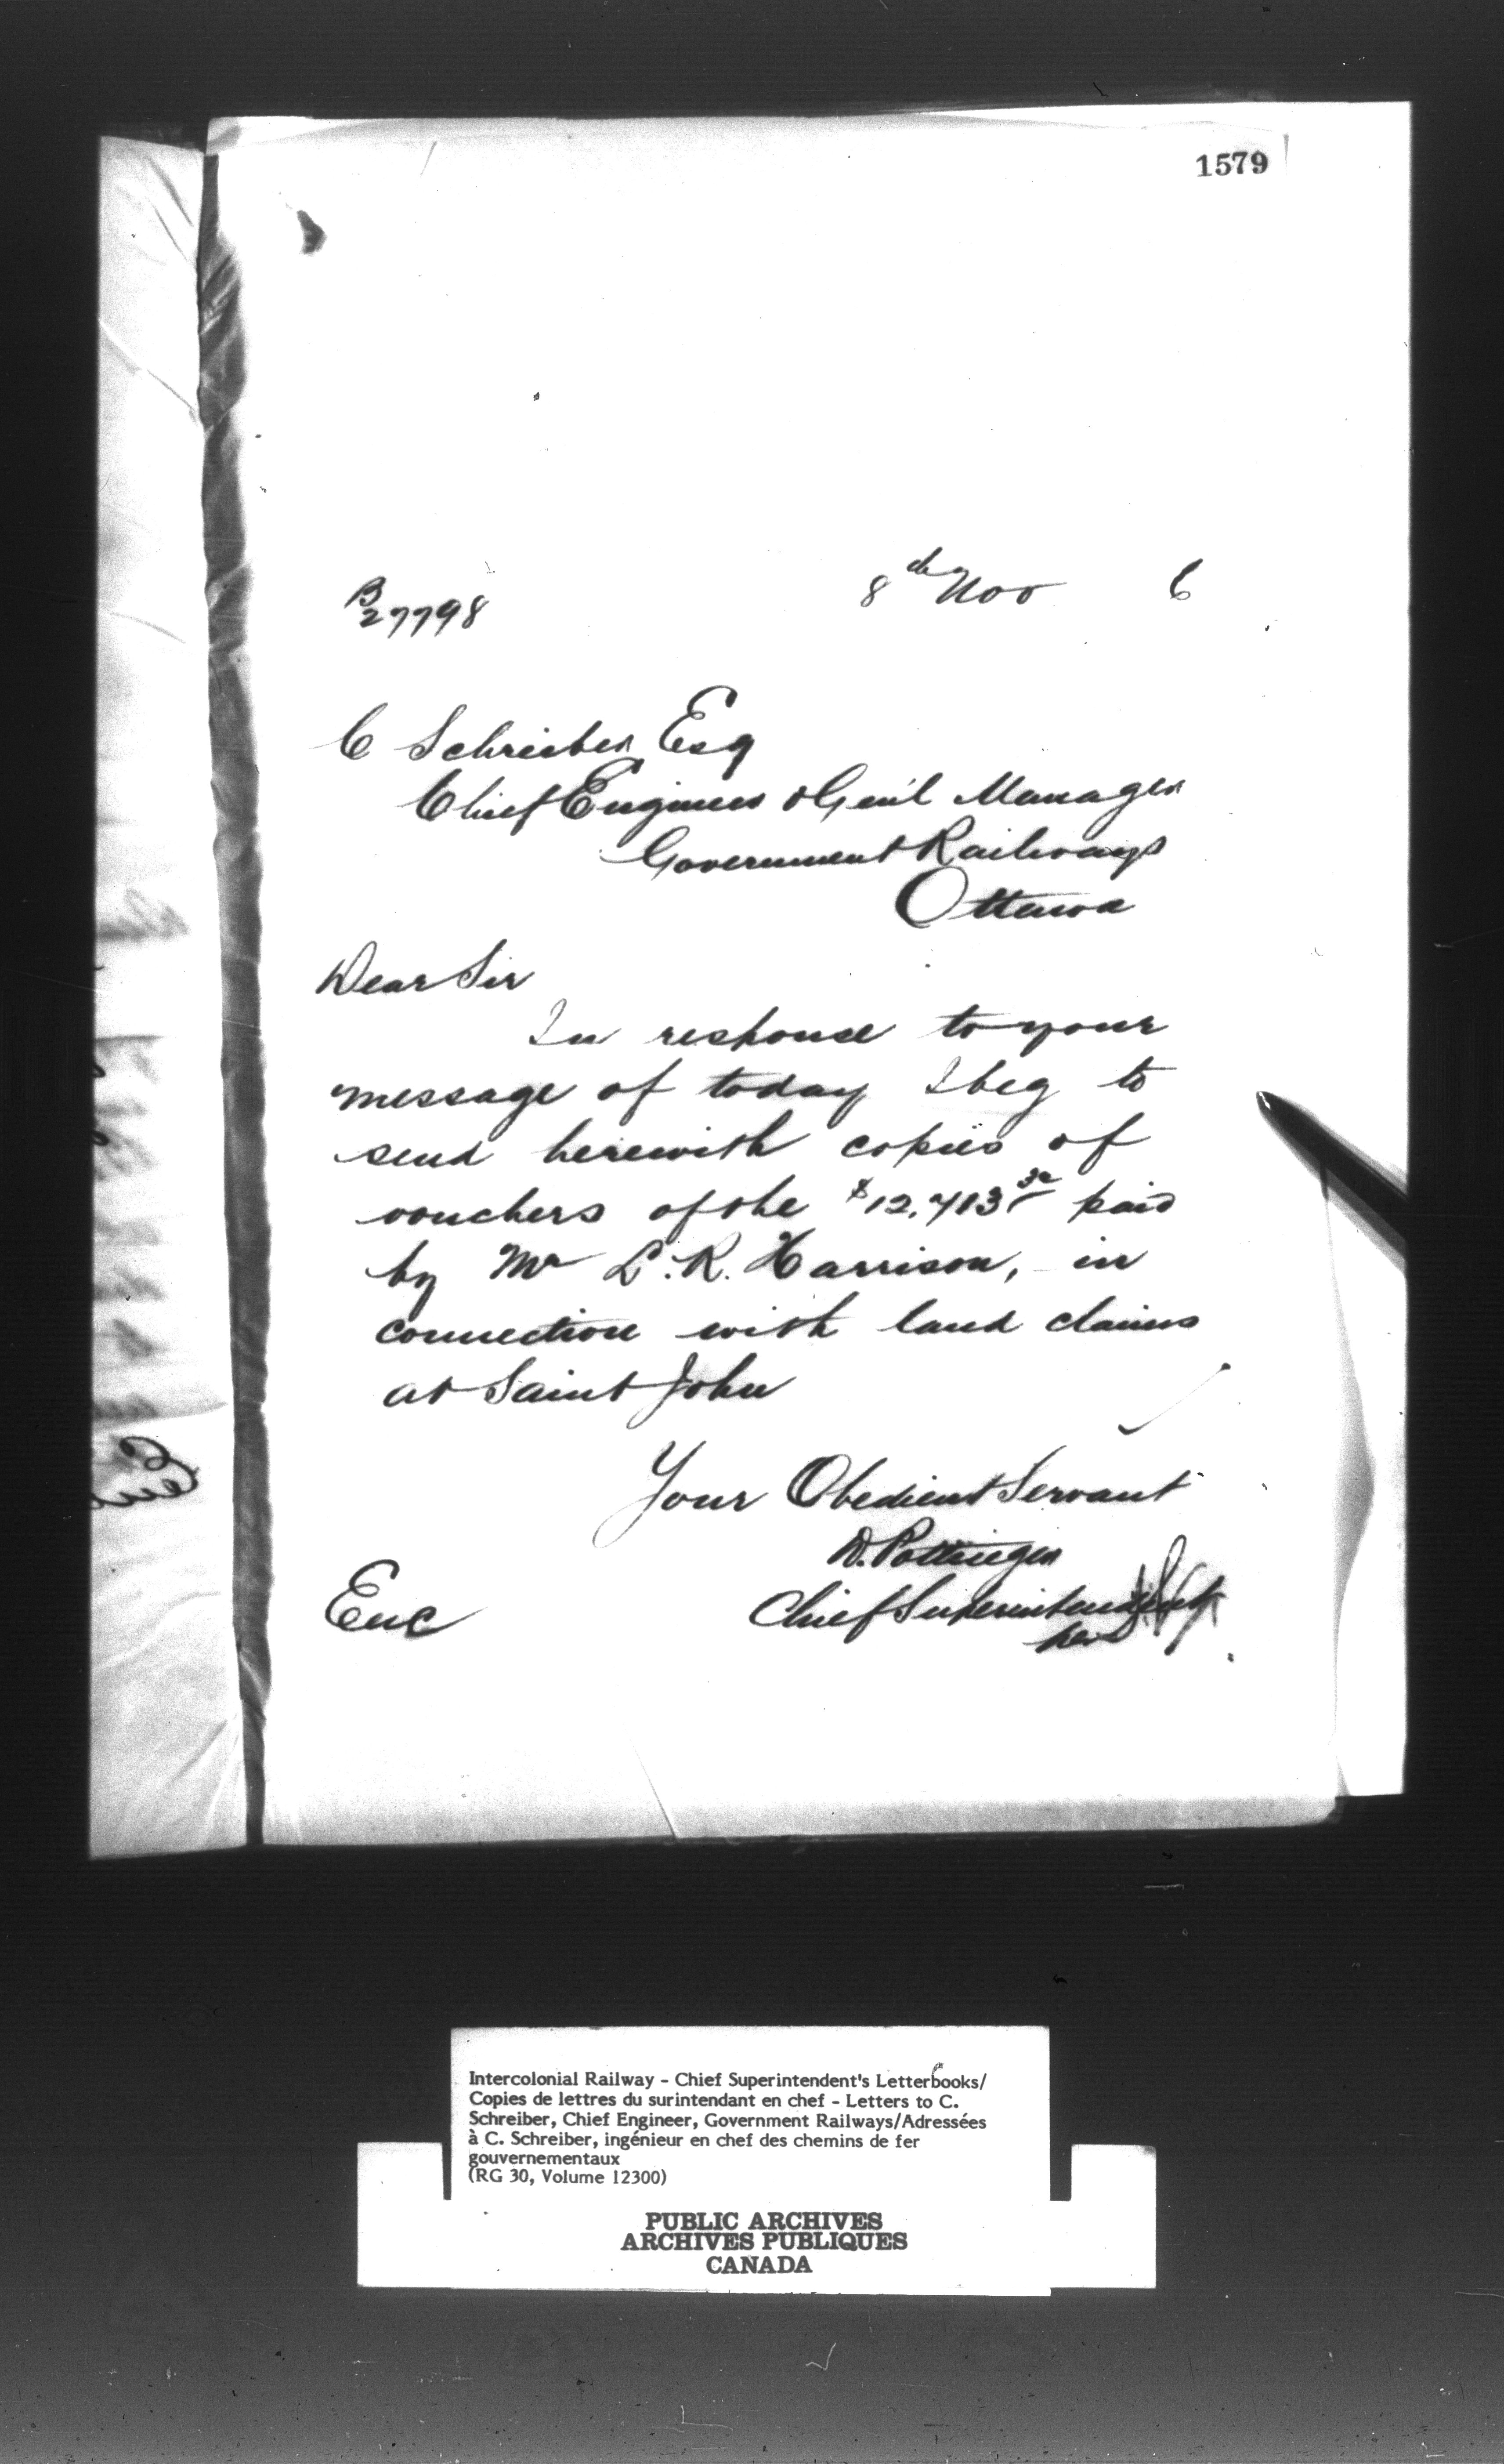 1579
B 27798 8th Nov 6
C Schreiber Esq
Chief Engineer & Gen'l Manager
Government Railways
Ottawa
Dear Sir
In response to your
message of today I beg to
send herewith copies of
vouchers of the $12,713 32 paid
by Mr L. R. Harrison, in
connection with land claims
at Saint John
Your Obedient Servant
D. Pottinger
Chief Superintendent
Enc
Intercolonial Railway - Chief Superintendent's Letterbooks/
Copies de lettres du surintendant en chef - Letters to C.
Schreiber, Chief Engineer, Government Railways/Adressées
à C. Schreiber, ingénieur en chef des chemins de fer
gouvernementaux
(RG 30, Volume 12300)
PUBLIC ARCHIVES
ARCHIVES PUBLIQUES
CANADA